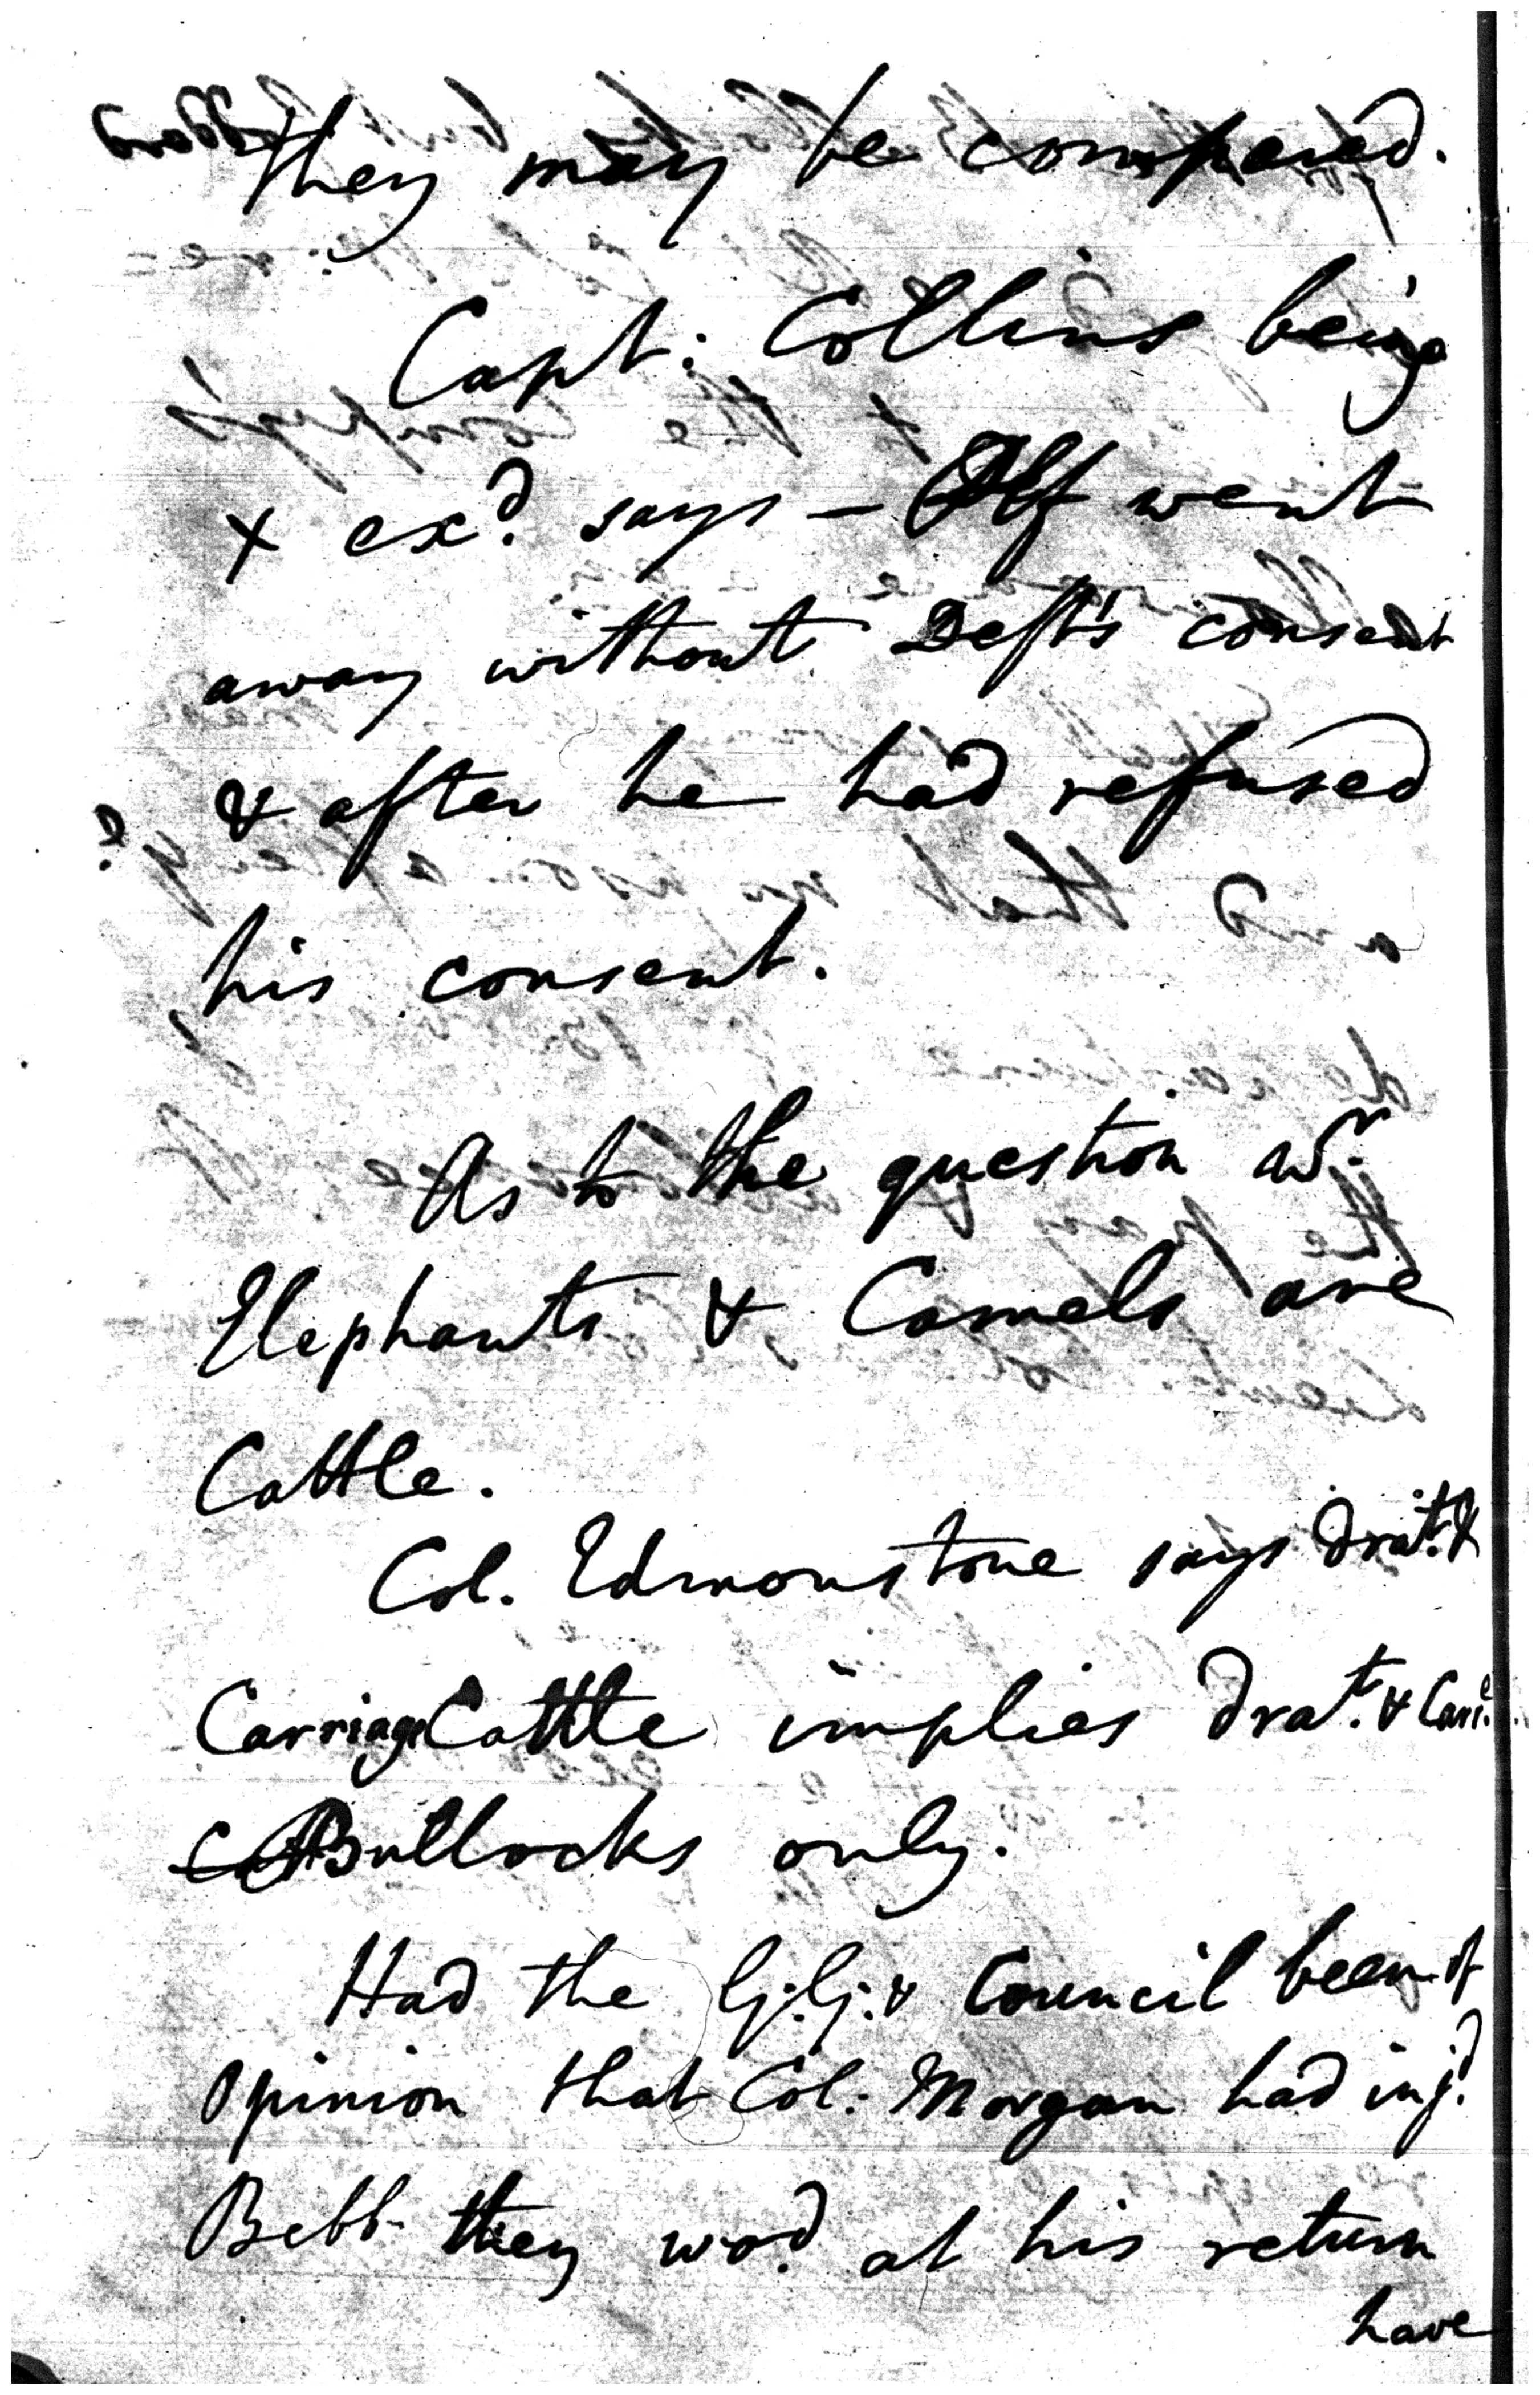 they may be compared.
Capt: Collins being
x ex.d says — Plf went
away without Deft's consent
& after he had refused
his consent.
As to the question w.r
Elephants & Camels are
Cattle.
Col. Edmonstone says dra.t &
Carriage Cattle implies dra.t & Carr.e
Bullocks only.
Had the G:G: & Council been of
opinion that Col. Morgan had inj.d
Bebb they wod. at his return
have